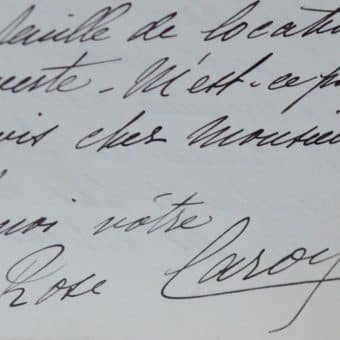 feuille de locati
uerte - N'est-ce p
vis cher Monsieu
moi vôtre
Rose Caron